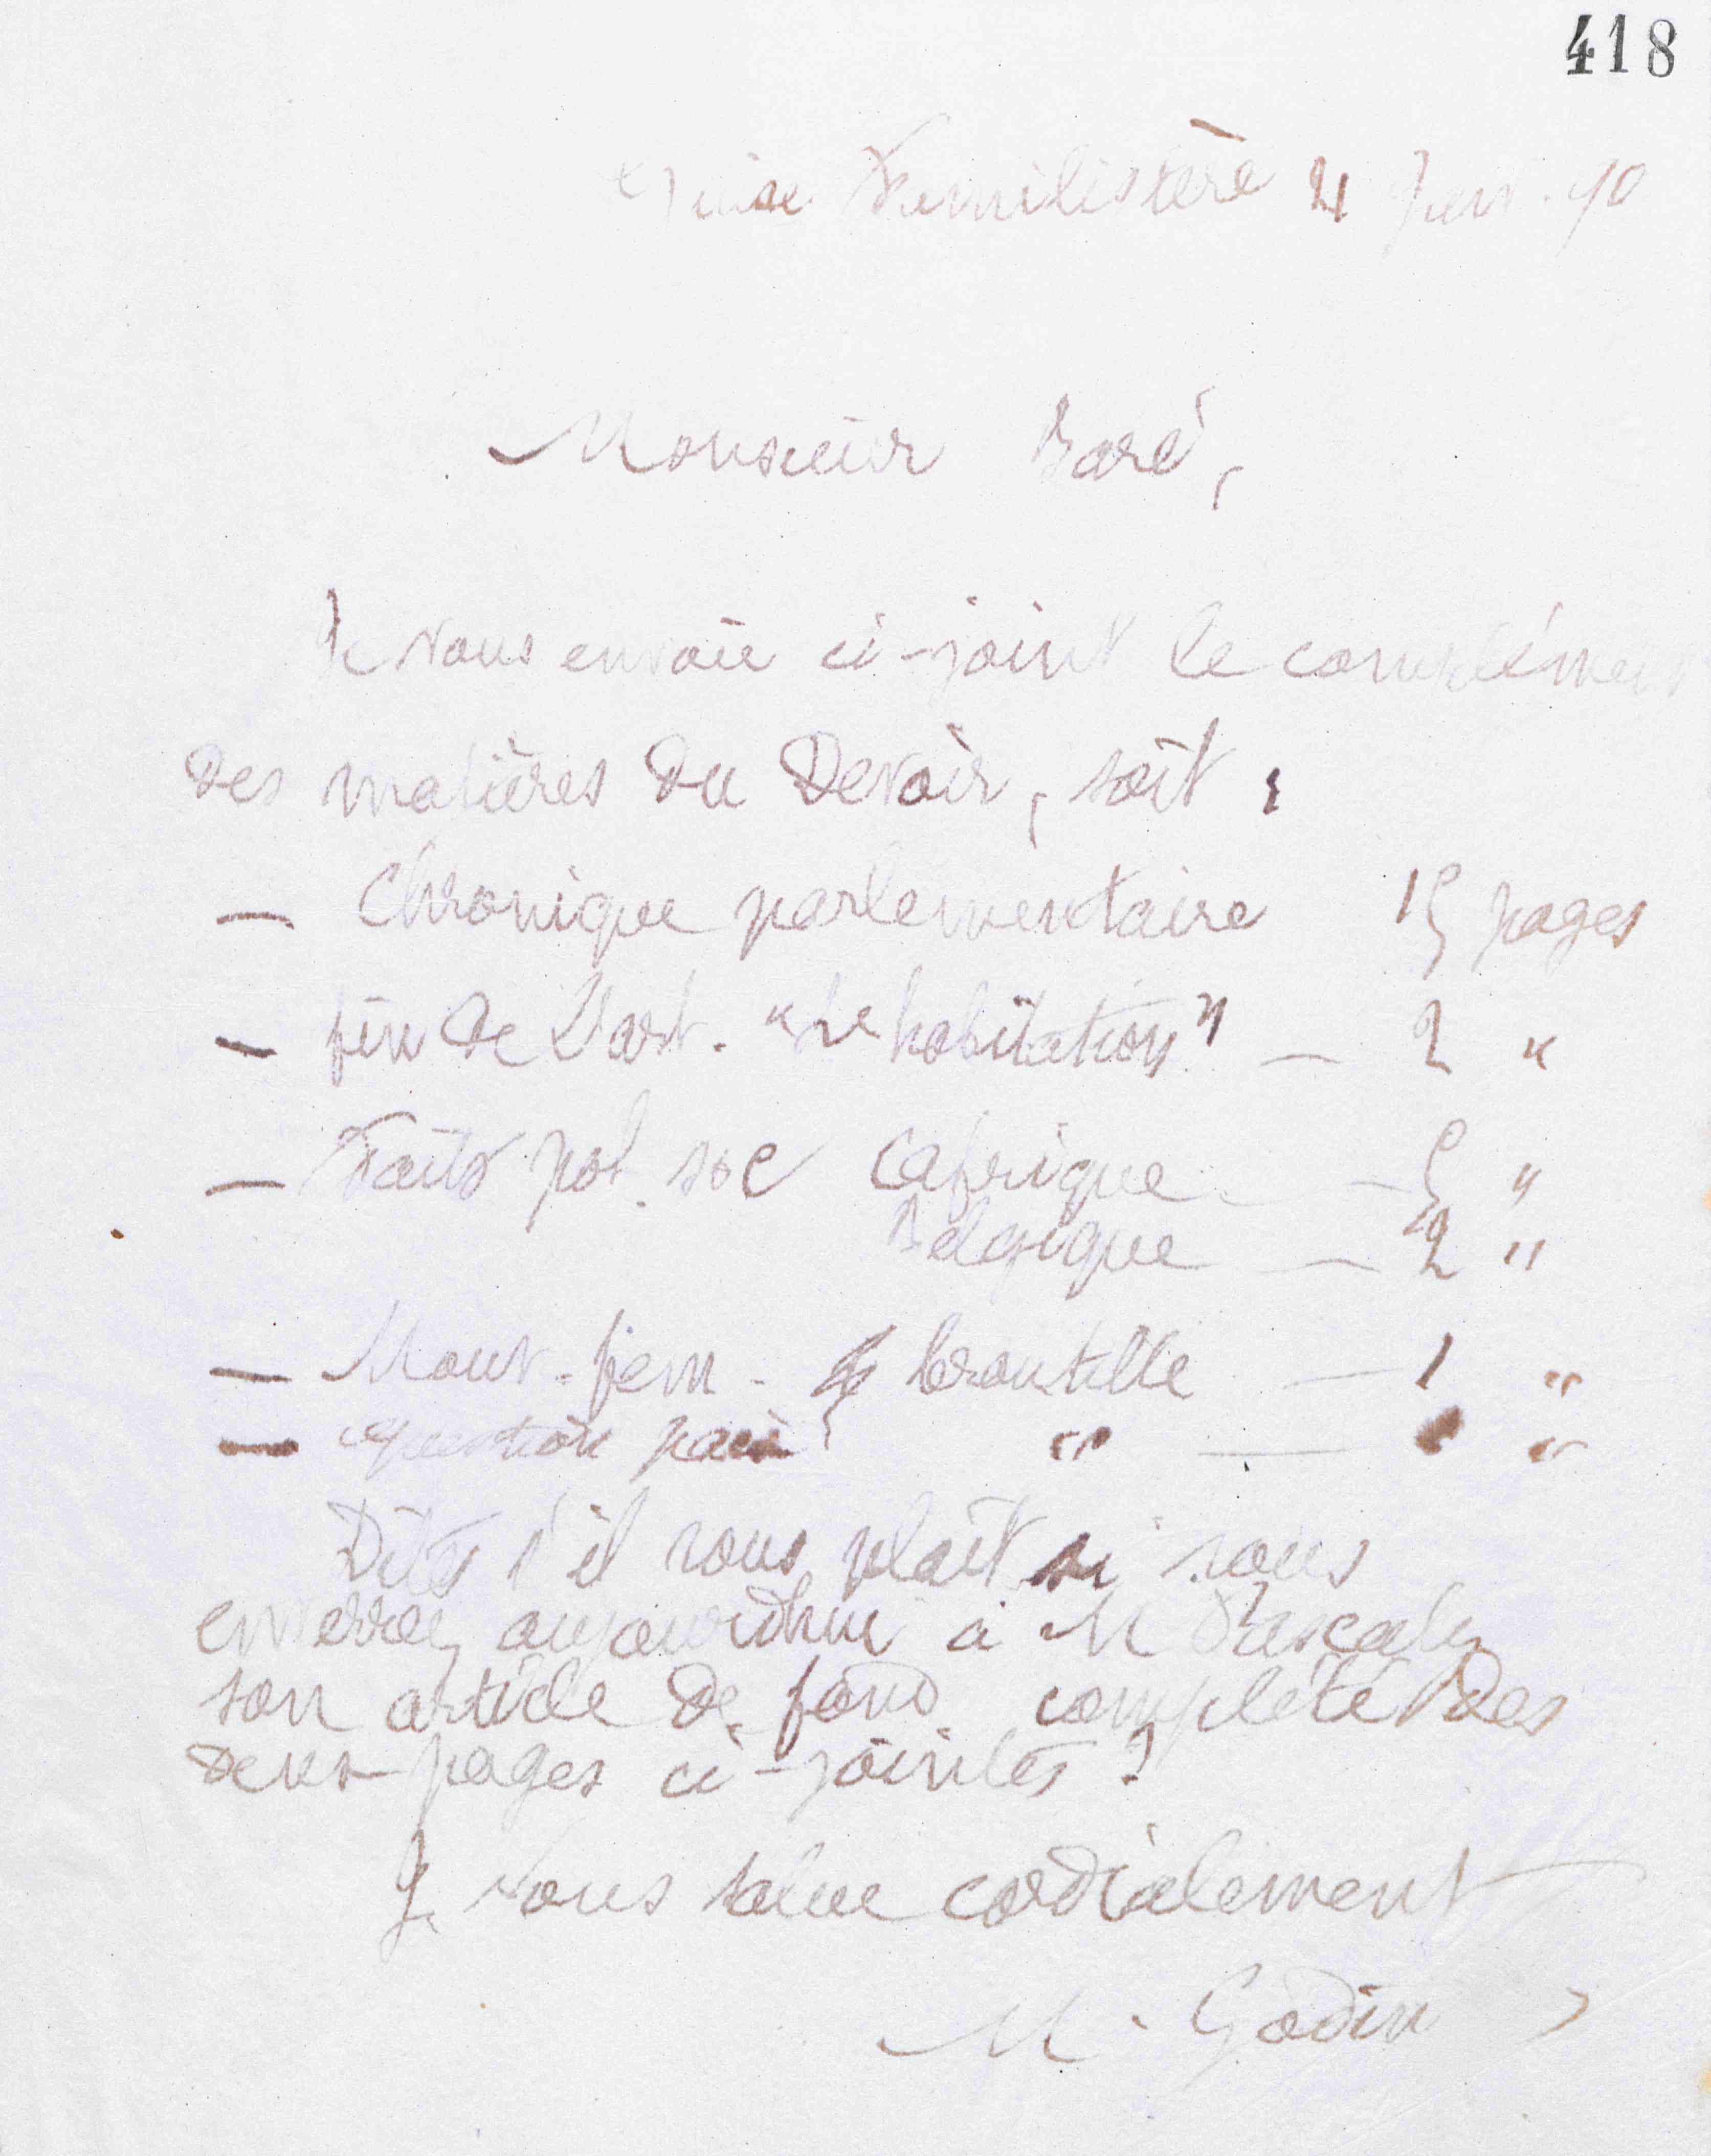 418
Guise Familistère 21 Janv. 90
Monsieur Baré,
Je vous envoie ci-joint le complément
des matières du Devoir, soit :
— Chronique parlementaire 15 pages
— fin de l'art. "L' habitation" — 2 "
— Faits pol. soc l'afrique — 5 "
Belgique — 2 "
— Mouv. fem. broutille — 1 "
— question paix " — "
Dites s'il vous plait si vous
enverrez aujourd'hui à M Pascaly
son article de fond complété des
deux pages ci-jointes ?
Je vous salue cordialement
M. Godin